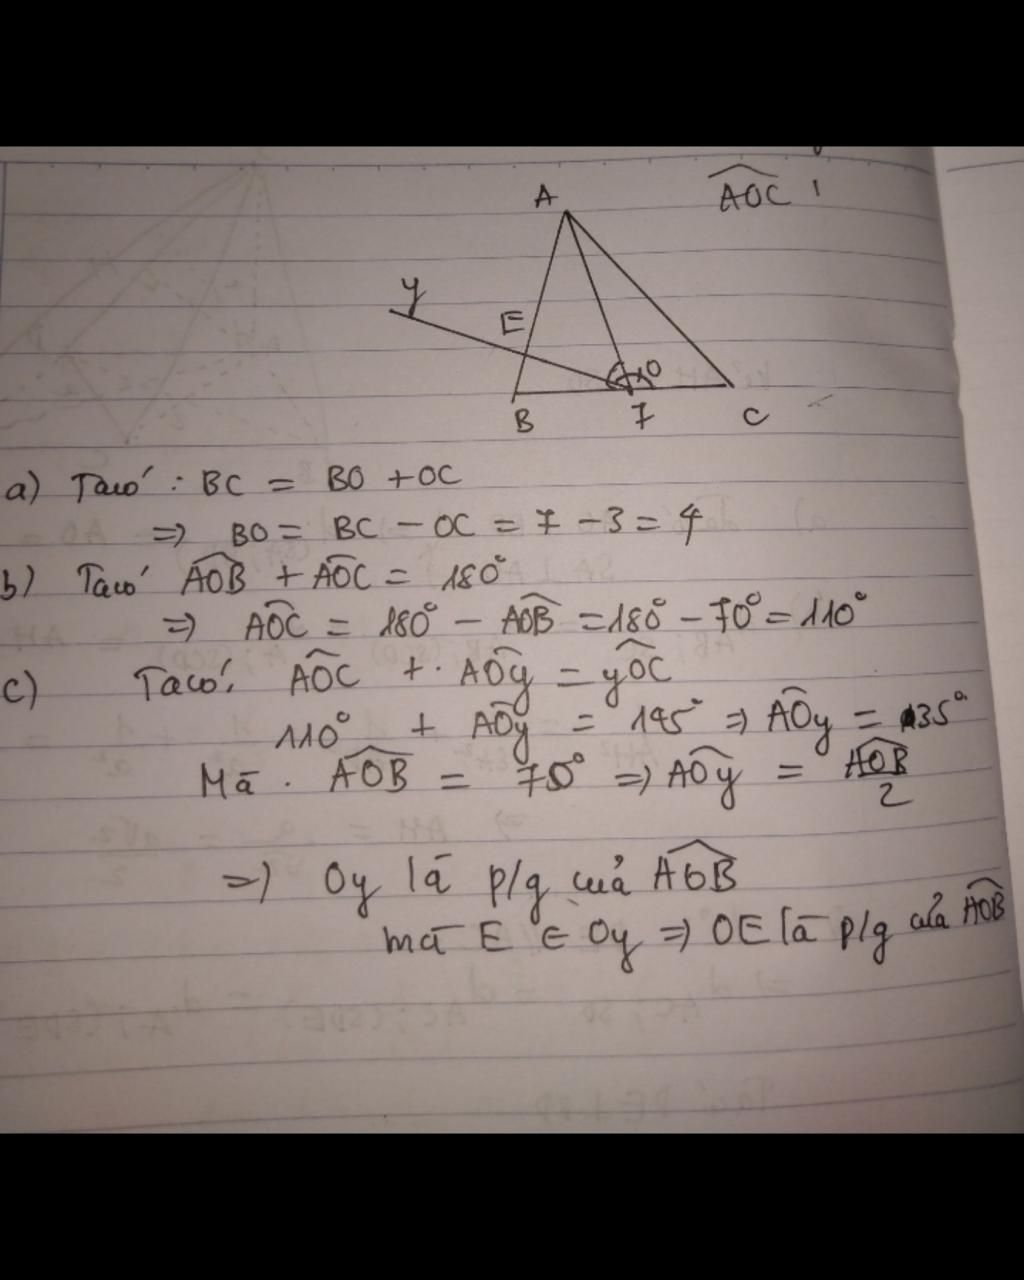 A
AOC
y
E
B
C
a) Ta có : BC = BO + OC
=> BO = BC - OC = 7 - 3 = 4
b) Ta có AOB + AOC = 180°
=> AOC = 180° - AOB = 180° - 70° = 110°
c) Ta có: AOC + AOy = yOC
110° + AOy = 145° => AOy = 35°
Mà . AOB = 70° => AOy = AOB/2
=> Oy là p/g của AOB
mà E ∈ Oy => OE là p/g của AOB